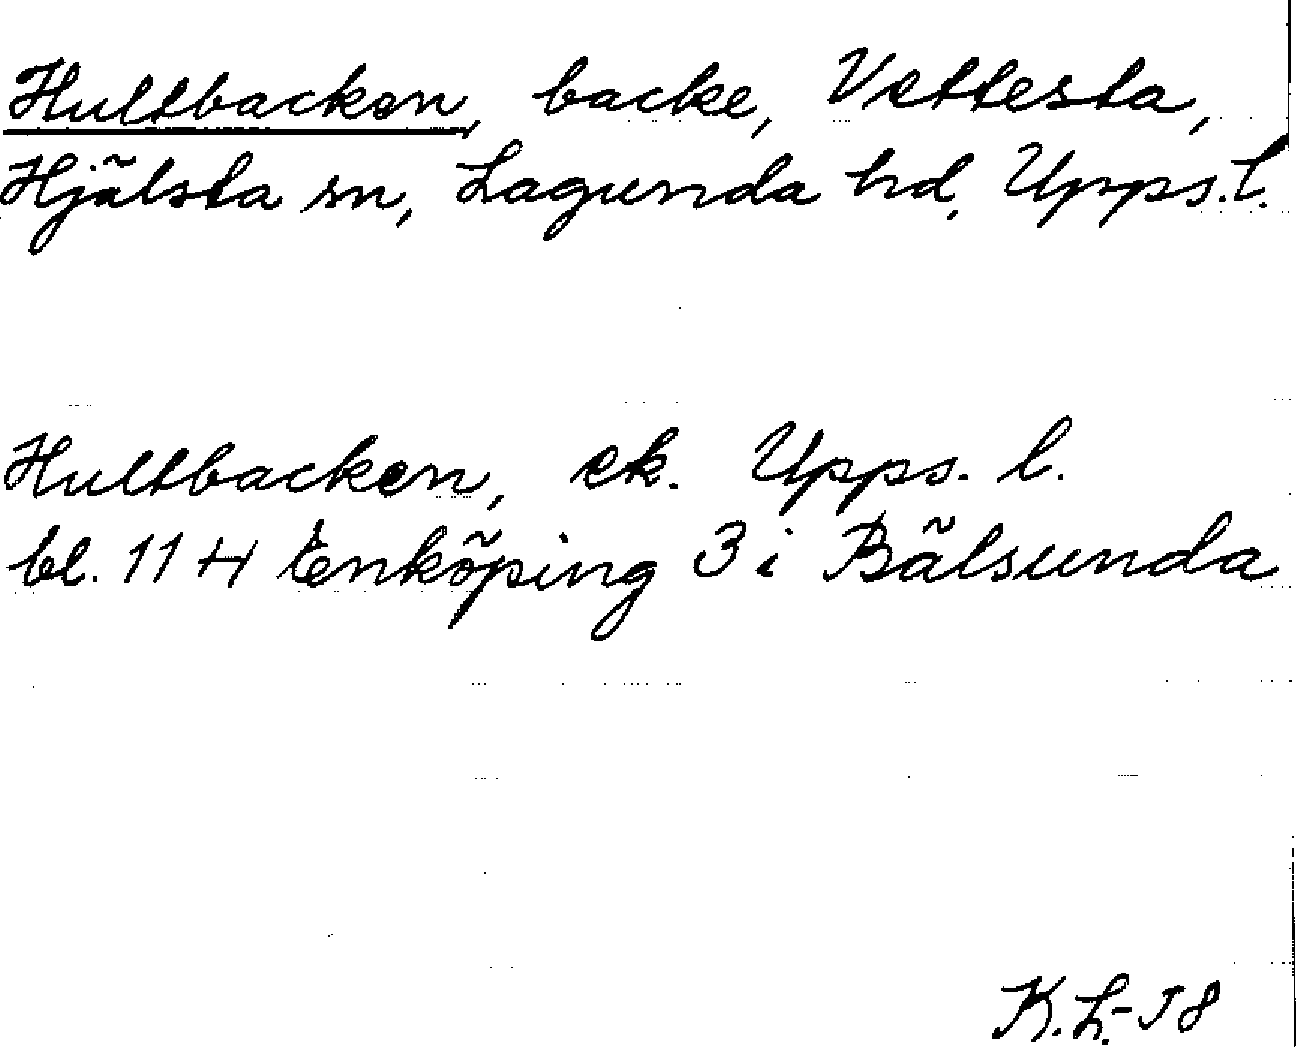 Hultbacken, backe, Vettesta,
Hjälsta sn, Lagunda hd, Upps. l.
Hultbacken, ek. Upps. l.
bl. 11 H Enköping 3 i Bälsunda
K. L. -58